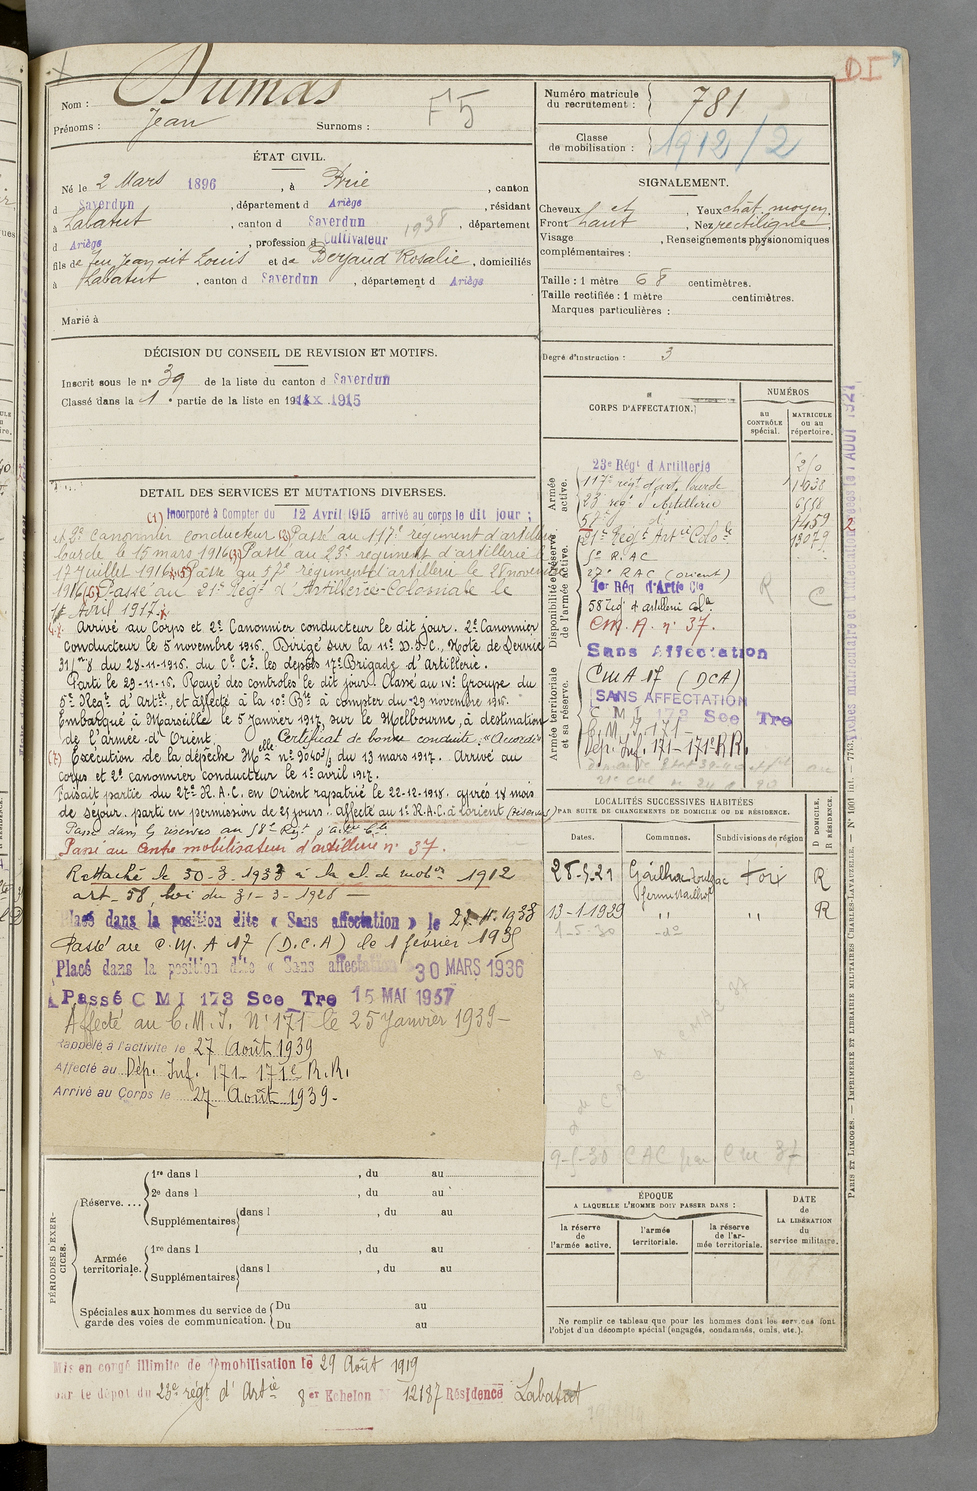 DI
Nom : Dumas
F 5
Prénoms : Jean Surnoms :
Numéro matricule du recrutement : 781
Classe de mobilisation : 1912/2
ÉTAT CIVIL.
Né le 2 Mars 1896, à Brie, canton
d Saverdun, département d Ariège, résidant
à Labatut, canton d Saverdun, département
1938
d Ariège, profession d Cultivateur
fils de feu Jean dit Louis et de Berjaud Rosalie, domiciliés
à Labatut, canton d Saverdun, département d Ariège
Marié à
SIGNALEMENT.
Cheveux chat, Yeux chât. moyen
Front haut, Nez rectiligne,
Visage , Renseignements physionomiques
complémentaires :
Taille : 1 mètre 68 centimètres.
Taille rectifiée : 1 mètre centimètres.
Marques particulières :
Degré d'instruction : 3
DÉCISION DU CONSEIL DE REVISION ET MOTIFS.
Inscrit sous le n° 39 de la liste du canton d Saverdun
Classé dans la 1e partie de la liste en 1915
DETAIL DES SERVICES ET MUTATIONS DIVERSES.
(1) Incorporé à Compter du 12 Avril 1915 arrivé au corps le dit jour ;
et 2e canonnier conducteur (2) Passé au 117e régiment d'artillerie
lourde le 15 mars 1916 (3) Passé au 23e régiment d'artillerie le
17 juillet 1916 (5) Passé au 57e régiment d'artillerie le 28 novembre
1916 (6) Passé au 21e Régt d'Artillerie Coloniale le
1er Avril 1917.
Arrivé au Corps et 2e Canonnier conducteur le dit jour. 2e Canonnier
conducteur le 5 novembre 1916. Dirigé sur la 11e D.I.C., Note de Service
31/m 8 du 28-11-1916. du Ct Ct. les depots 17e Brigade d'Artillerie.
Parti le 29-11-16. Rayé des controles le dit jour. Classé au IVe Groupe du
5e Regt d'Artie, et affecté à la 10e Bie à compter du 29 novembre 1916.
Embarqué à Marseille le 5 janvier 1917, sur le Melbourne, à destination
de l'armée d'Orient. Certificat de bonne conduite : "Accordé"
(7) Exécution de la dépêche Mlle n° 9040 3/3 du 13 mars 1917. Arrivé au
corps et 2e canonnier conducteur le 1er avril 1917.
Faisait partie du 27e R.A.C. en Orient rapatrié le 22-12-1918. après 18 mois
de séjour. parti en permission de 25 jours. Affecté au 1er R.A.C. à Lorient (Réserves)
Passé dans les réserves au 58e Régt d'Artie Cle
Passé au Centre mobilisateur d'artillerie n° 37.
Rattaché le 30-3-1933 à la cl. de mobon 1912
art. 58, loi du 31-3-1928
Placé dans la position dite « Sans affectation » le 27.11.1933
Passé au C.M.A 17 (D.C.A) le 1 février 1935
Placé dans la position dite « Sans affectation » 30 MARS 1936
Passé C M I 173 Sce Tre 15 MAI 1937
Affecté au C.M.I. N° 171 le 25 Janvier 1939 -
Rappelé à l'activité le 27 Août 1939
Affecté au Dép. Inf. 171 - 171e R.R.
Arrivé au Corps le 27 Août 1939 -
CORPS D'AFFECTATION.
NUMÉROS
au CONTRÔLE spécial.
MATRICULE OU AU répertoire.
Armée active.
Disponibilité et réserve de l'armée active.
Armée territoriale et sa réserve.
23e Régt d Artillerie
117e régt d'art. lourde
23 regt d'Artillerie 6558
57e d° 7459
21e Régt Artie Colole 13079
5e R.A.C
27e R.A.C (Orient)
1er Rég d'Artie Cle
58 régt d'artillerie Colle
C.M.A. n° 37.
R C
Sans Affectation
C M A 17 (DCA)
SANS AFFECTATION
C M I 173 Sce Tre
C.M.I. 171 -
Dép. Inf. 171 - 171e R.R.
LOCALITÉS SUCCESSIVES HABITÉES
PAR SUITE DE CHANGEMENTS DE DOMICILE OU DE RÉSIDENCE.
Dates. Communes. Subdivisions de région D DOMICILE. R RÉSIDENCE.
28-5-21 Gailhac Foix R
13-1-1929 " " R
1-5-30 - d°
9-5-30 CAC par CM 37
PÉRIODES D'EXERCICES.
Réserve.... 1re dans l , du au
2e dans l , du au
Supplémentaires dans l , du au
Armée territoriale. 1re dans l , du au
Supplémentaires dans l , du au
Spéciales aux hommes du service de garde des voies de communication. Du au
Du au
ÉPOQUE
A LAQUELLE L'HOMME DOIT PASSER DANS :
la réserve de l'armée active.
l'armée territoriale.
la réserve de l'armée territoriale.
DATE de LA LIBÉRATION du service militaire.
Ne remplir ce tableau que pour les hommes dont les services font
l'objet d'un décompte spécial (engagés, condamnés, omis, etc.).
Mis en congé illimité de démobilisation le 29 Août 1919
par le dépôt du 23e régt d'Artie 8er Echelon N° 12187 Résidence Labatut
PARIS ET LIMOGES. — IMPRIMERIE ET LIBRAIRIE MILITAIRES CHARLES-LAVAUZELLE. — N° 1001 int. — 7753.